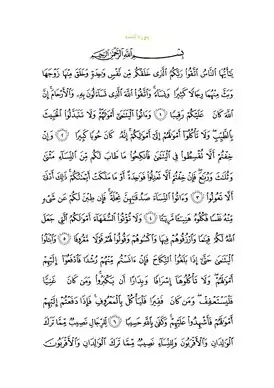 سورة النساء
بِسْمِ ٱللَّهِ ٱلرَّحْمَٰنِ ٱلرَّحِيمِ
يَٰٓأَيُّهَا ٱلنَّاسُ ٱتَّقُوا۟ رَبَّكُمُ ٱلَّذِى خَلَقَكُم مِّن نَّفْسٍ وَٰحِدَةٍ وَخَلَقَ مِنْهَا زَوْجَهَا
وَبَثَّ مِنْهُمَا رِجَالًا كَثِيرًا وَنِسَآءً وَٱتَّقُوا۟ ٱللَّهَ ٱلَّذِى تَسَآءَلُونَ بِهِۦ وَٱلْأَرْحَامَ إِنَّ
ٱللَّهَ كَانَ عَلَيْكُمْ رَقِيبًا ١ وَءَاتُوا۟ ٱلْيَتَٰمَىٰٓ أَمْوَٰلَهُمْ وَلَا تَتَبَدَّلُوا۟ ٱلْخَبِيثَ
بِٱلطَّيِّبِ وَلَا تَأْكُلُوٓا۟ أَمْوَٰلَهُمْ إِلَىٰٓ أَمْوَٰلِكُمْ إِنَّهُۥ كَانَ حُوبًا كَبِيرًا ٢ وَإِنْ
خِفْتُمْ أَلَّا تُقْسِطُوا۟ فِى ٱلْيَتَٰمَىٰ فَٱنكِحُوا۟ مَا طَابَ لَكُم مِّنَ ٱلنِّسَآءِ مَثْنَىٰ
وَثُلَٰثَ وَرُبَٰعَ فَإِنْ خِفْتُمْ أَلَّا تَعْدِلُوا۟ فَوَٰحِدَةً أَوْ مَا مَلَكَتْ أَيْمَٰنُكُمْ ذَٰلِكَ أَدْنَىٰٓ
أَلَّا تَعُولُوا۟ ٣ وَءَاتُوا۟ ٱلنِّسَآءَ صَدُقَٰتِهِنَّ نِحْلَةً فَإِن طِبْنَ لَكُمْ عَن شَىْءٍ
مِّنْهُ نَفْسًا فَكُلُوهُ هَنِيٓـًٔا مَّرِيٓـًٔا ٤ وَلَا تُؤْتُوا۟ ٱلسُّفَهَآءَ أَمْوَٰلَكُمُ ٱلَّتِى جَعَلَ
ٱللَّهُ لَكُمْ قِيَٰمًا وَٱرْزُقُوهُمْ فِيهَا وَٱكْسُوهُمْ وَقُولُوا۟ لَهُمْ قَوْلًا مَّعْرُوفًا ٥ وَٱبْتَلُوا۟
ٱلْيَتَٰمَىٰ حَتَّىٰٓ إِذَا بَلَغُوا۟ ٱلنِّكَاحَ فَإِنْ ءَانَسْتُم مِّنْهُمْ رُشْدًا فَٱدْفَعُوٓا۟ إِلَيْهِمْ
أَمْوَٰلَهُمْ وَلَا تَأْكُلُوهَآ إِسْرَافًا وَبِدَارًا أَن يَكْبَرُوا۟ وَمَن كَانَ غَنِيًّا
فَلْيَسْتَعْفِفْ وَمَن كَانَ فَقِيرًا فَلْيَأْكُلْ بِٱلْمَعْرُوفِ فَإِذَا دَفَعْتُمْ إِلَيْهِمْ
أَمْوَٰلَهُمْ فَأَشْهِدُوا۟ عَلَيْهِمْ وَكَفَىٰ بِٱللَّهِ حَسِيبًا ٦ لِّلرِّجَالِ نَصِيبٌ مِّمَّا تَرَكَ
ٱلْوَٰلِدَانِ وَٱلْأَقْرَبُونَ وَلِلنِّسَآءِ نَصِيبٌ مِّمَّا تَرَكَ ٱلْوَٰلِدَانِ وَٱلْأَقْرَبُونَ